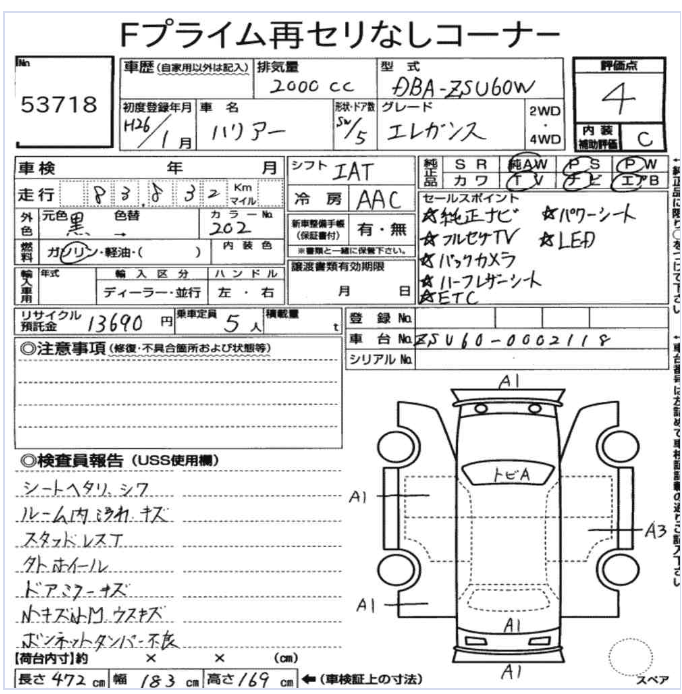 Fプライム再セリなしコーナー
No 53718
車歴 (自家用以外は記入)
排気量 2000 cc
型式 DBA-ZSU60W
評価点 4
初度登録年月 H26/1月
車名 ハリアー
形状・ドア数 SW/5
グレード エレガンス
2WD・4WD
内装補助評価 C
車検 年 月
シフト IAT
純正品 SR 純AW PS PW
カワ TV ナビ エアB
走行 83,832 Km マイル
冷房 AAC
外色 元色 黒 色替 →
カラーNo. 202
新車整備手帳(保証書付) 有・無
※書類と一緒に保管下さい。
セールスポイント
☆純正ナビ ☆パワーシート
☆フルセグTV ☆LED
☆バックカメラ
☆ハーフレザーシート
☆ETC
燃料 ガソリン・軽油・( )
内装色
譲渡書類有効期限 月 日
輸入車用 年式 輸入区分 ハンドル
ディーラー・並行 左・右
リサイクル預託金 13690円
乗車定員 5人
積載量 t
登録No.
車台No. ZSU60-0002118
シリアルNo.
◎注意事項 (修復・不具合箇所および状態等)
◎検査員報告 (USS使用欄)
シートヘタリ、シワ
ルーム内汚れ、キズ
スタッドレスT
外ホイール
ドアミラーキズ
小キズ小凹、ウスキズ
ボンネットダンパー不良
A1
トビA
A1
A3
A1
A1
A1
スペア
【荷台内寸】約 × × (cm)
長さ 472 cm 幅 183 cm 高さ 169 cm ←(車検証上の寸法)